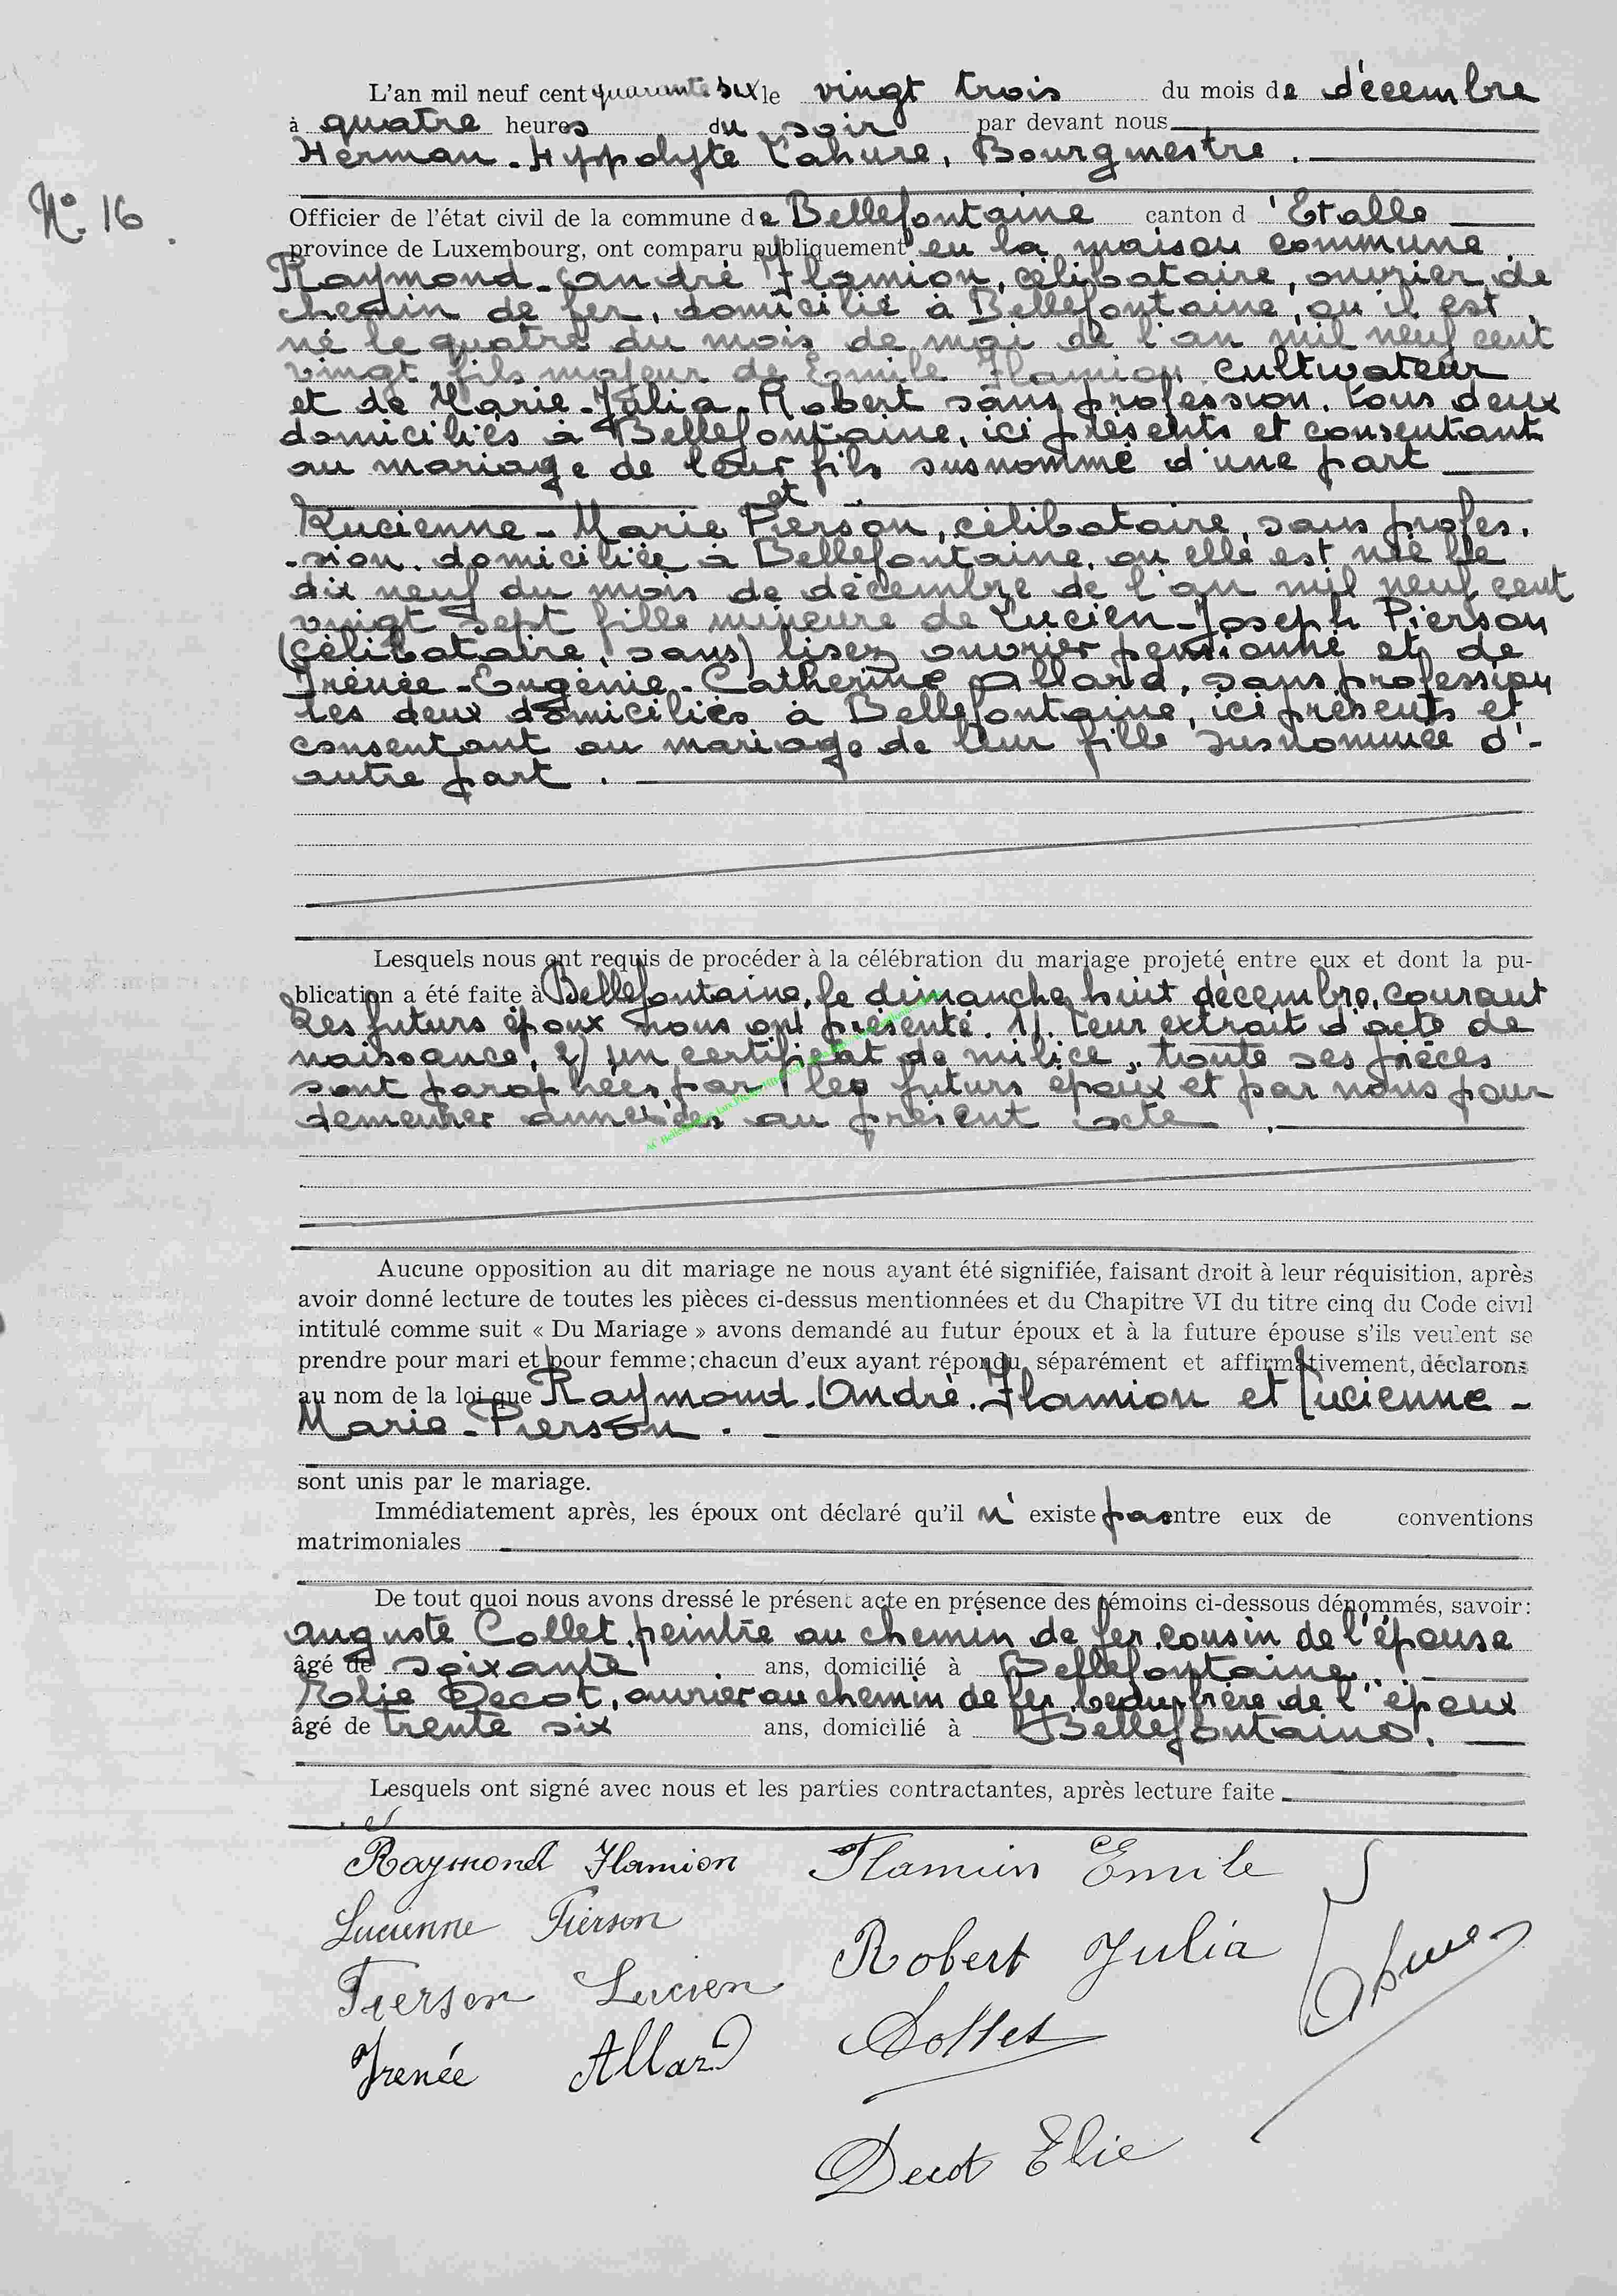 L'an mil neuf cent quarante six le vingt trois du mois de décembre
à quatre heures du soir par devant nous
Herman-Hyppolyte Lahure, Bourgmestre.
N° 16.
Officier de l'état civil de la commune de Bellefontaine canton d'Etalle
province de Luxembourg, ont comparu publiquement en la maison commune.
Raymond-André Flamion, célibataire, ouvrier de
chemin de fer, domicilié à Bellefontaine, ou il est
né le quatre du mois de mai de l'an mil neuf cent
vingt fils majeur de Emile Flamion cultivateur
et de Marie-Julia-Robert sans profession, tous deux
domiciliés à Bellefontaine, ici présents et consentant
au mariage de leur fils susnommé d'une part
et
Lucienne-Marie Pierson, célibataire, sans profes.
-sion. domiciliée à Bellefontaine, ou elle est née le
dix neuf du mois de décembre de l'an mil neuf cent
vingt sept fille mineure de Lucien-Joseph Pierson
(célibataire, sans) lisez ouvrier pensionné et de
Irénée-Eugénie-Catherine Allard, sans profession
les deux domiciliés à Bellefontaine, ici présents et
consentant au mariage de leur fille susnommée d'-
autre part.
Lesquels nous ont requis de procéder à la célébration du mariage projeté entre eux et dont la pu-
blication a été faite à Bellefontaine, le dimanche huit décembre, courant
Les futurs époux nous ont présenté. 1/. Leur extrait d'acte de
naissance, 2/ un certificat de milice, toute ses pièces
sont paraphées par les futurs époux et par nous pour
demeurer annexées au présent acte.
Aucune opposition au dit mariage ne nous ayant été signifiée, faisant droit à leur réquisition, après
avoir donné lecture de toutes les pièces ci-dessus mentionnées et du Chapitre VI du titre cinq du Code civil
intitulé comme suit « Du Mariage » avons demandé au futur époux et à la future épouse s'ils veulent se
prendre pour mari et pour femme; chacun d'eux ayant répondu séparément et affirmativement, déclarons
au nom de la loi que Raymond-André-Flamion et Lucienne-
Marie-Pierson.
sont unis par le mariage.
Immédiatement après, les époux ont déclaré qu'il n'existe pas entre eux de conventions
matrimoniales
De tout quoi nous avons dressé le présent acte en présence des témoins ci-dessous dénommés, savoir:
Auguste Collet, peintre au chemin de fer, cousin de l'épouse
âgé de soixante ans, domicilié à Bellefontaine.
Elie Decot, ouvrier au chemin de fer, beau-frère de l'époux
âgé de trente six ans, domicilié à Bellefontaine.
Lesquels ont signé avec nous et les parties contractantes, après lecture faite
Raymond Flamion Flamion Emile
Lucienne Pierson Robert Julia
Pierson Lucien Collet Lahure
Irenée Allard
Decot Elie